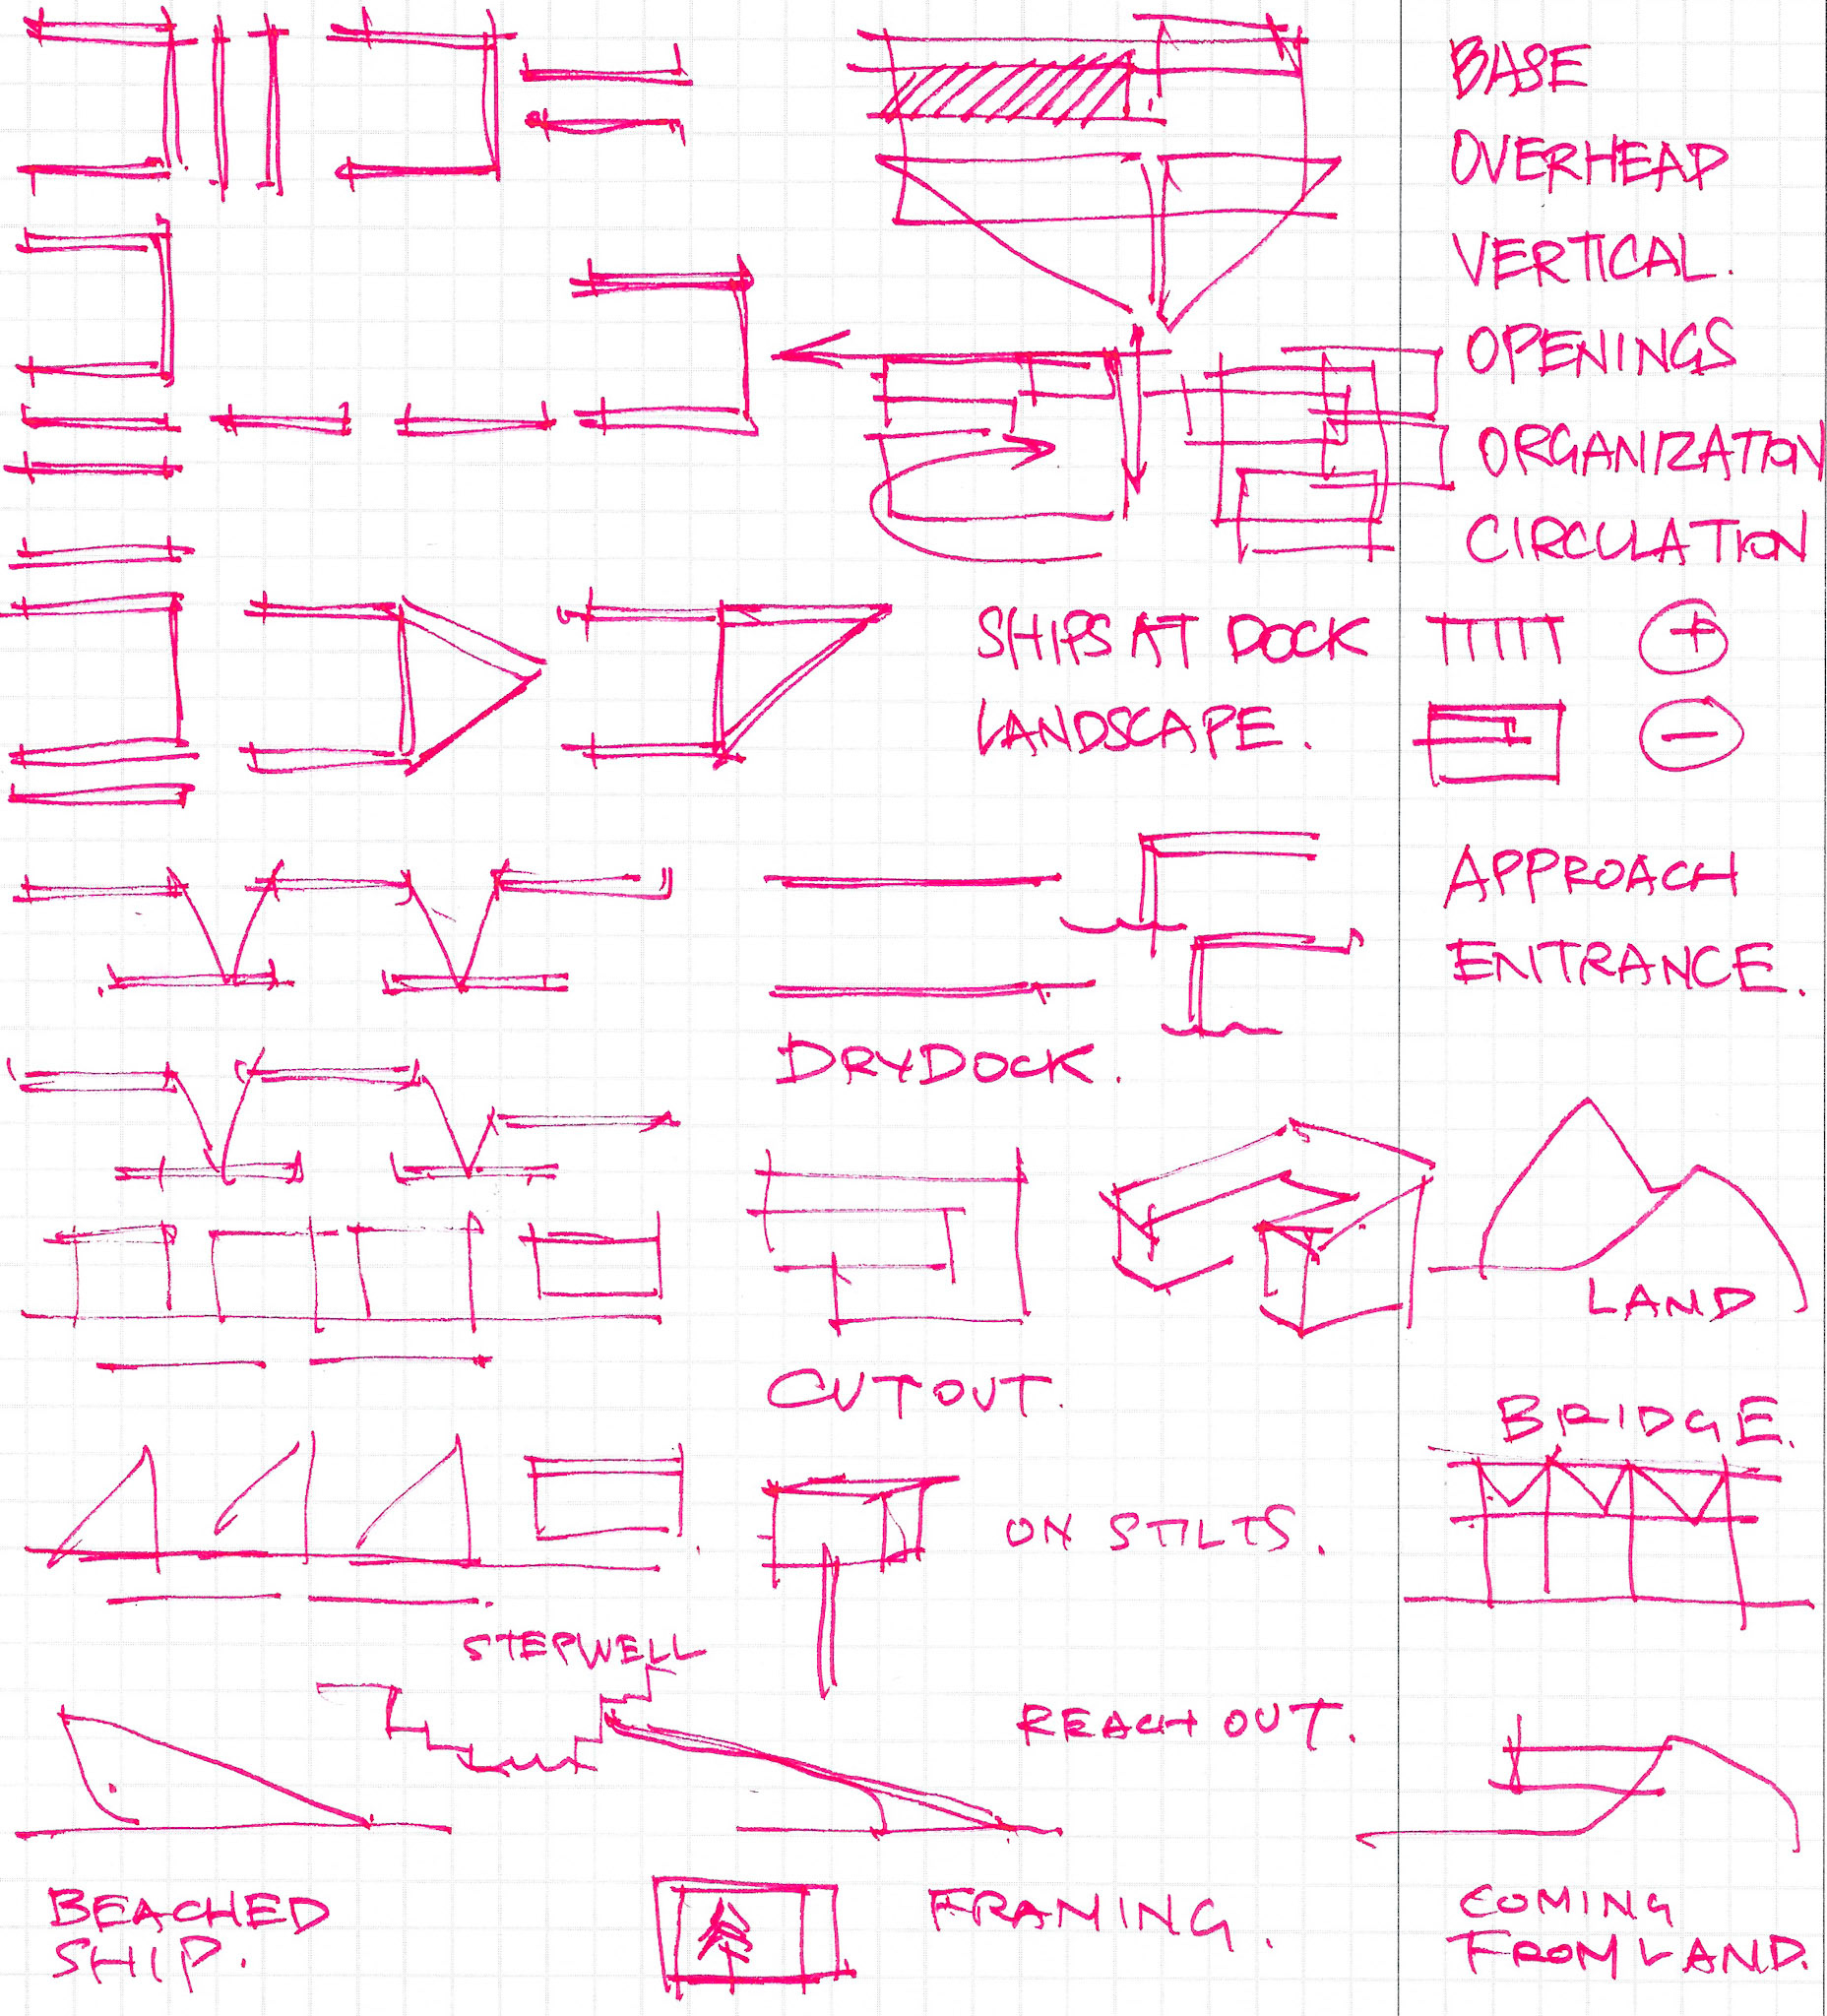 BASE
OVERHEAD
VERTICAL.
OPENINGS
ORGANIZATION
CIRCULATION
SHIPS AT DOCK
+
LANDSCAPE.
−
APPROACH
ENTRANCE.
DRYDOCK.
LAND
CUT OUT.
BRIDGE.
ON STILTS.
STEPWELL
REACH OUT.
BEACHED
SHIP.
FRAMING.
COMING
FROM LAND.